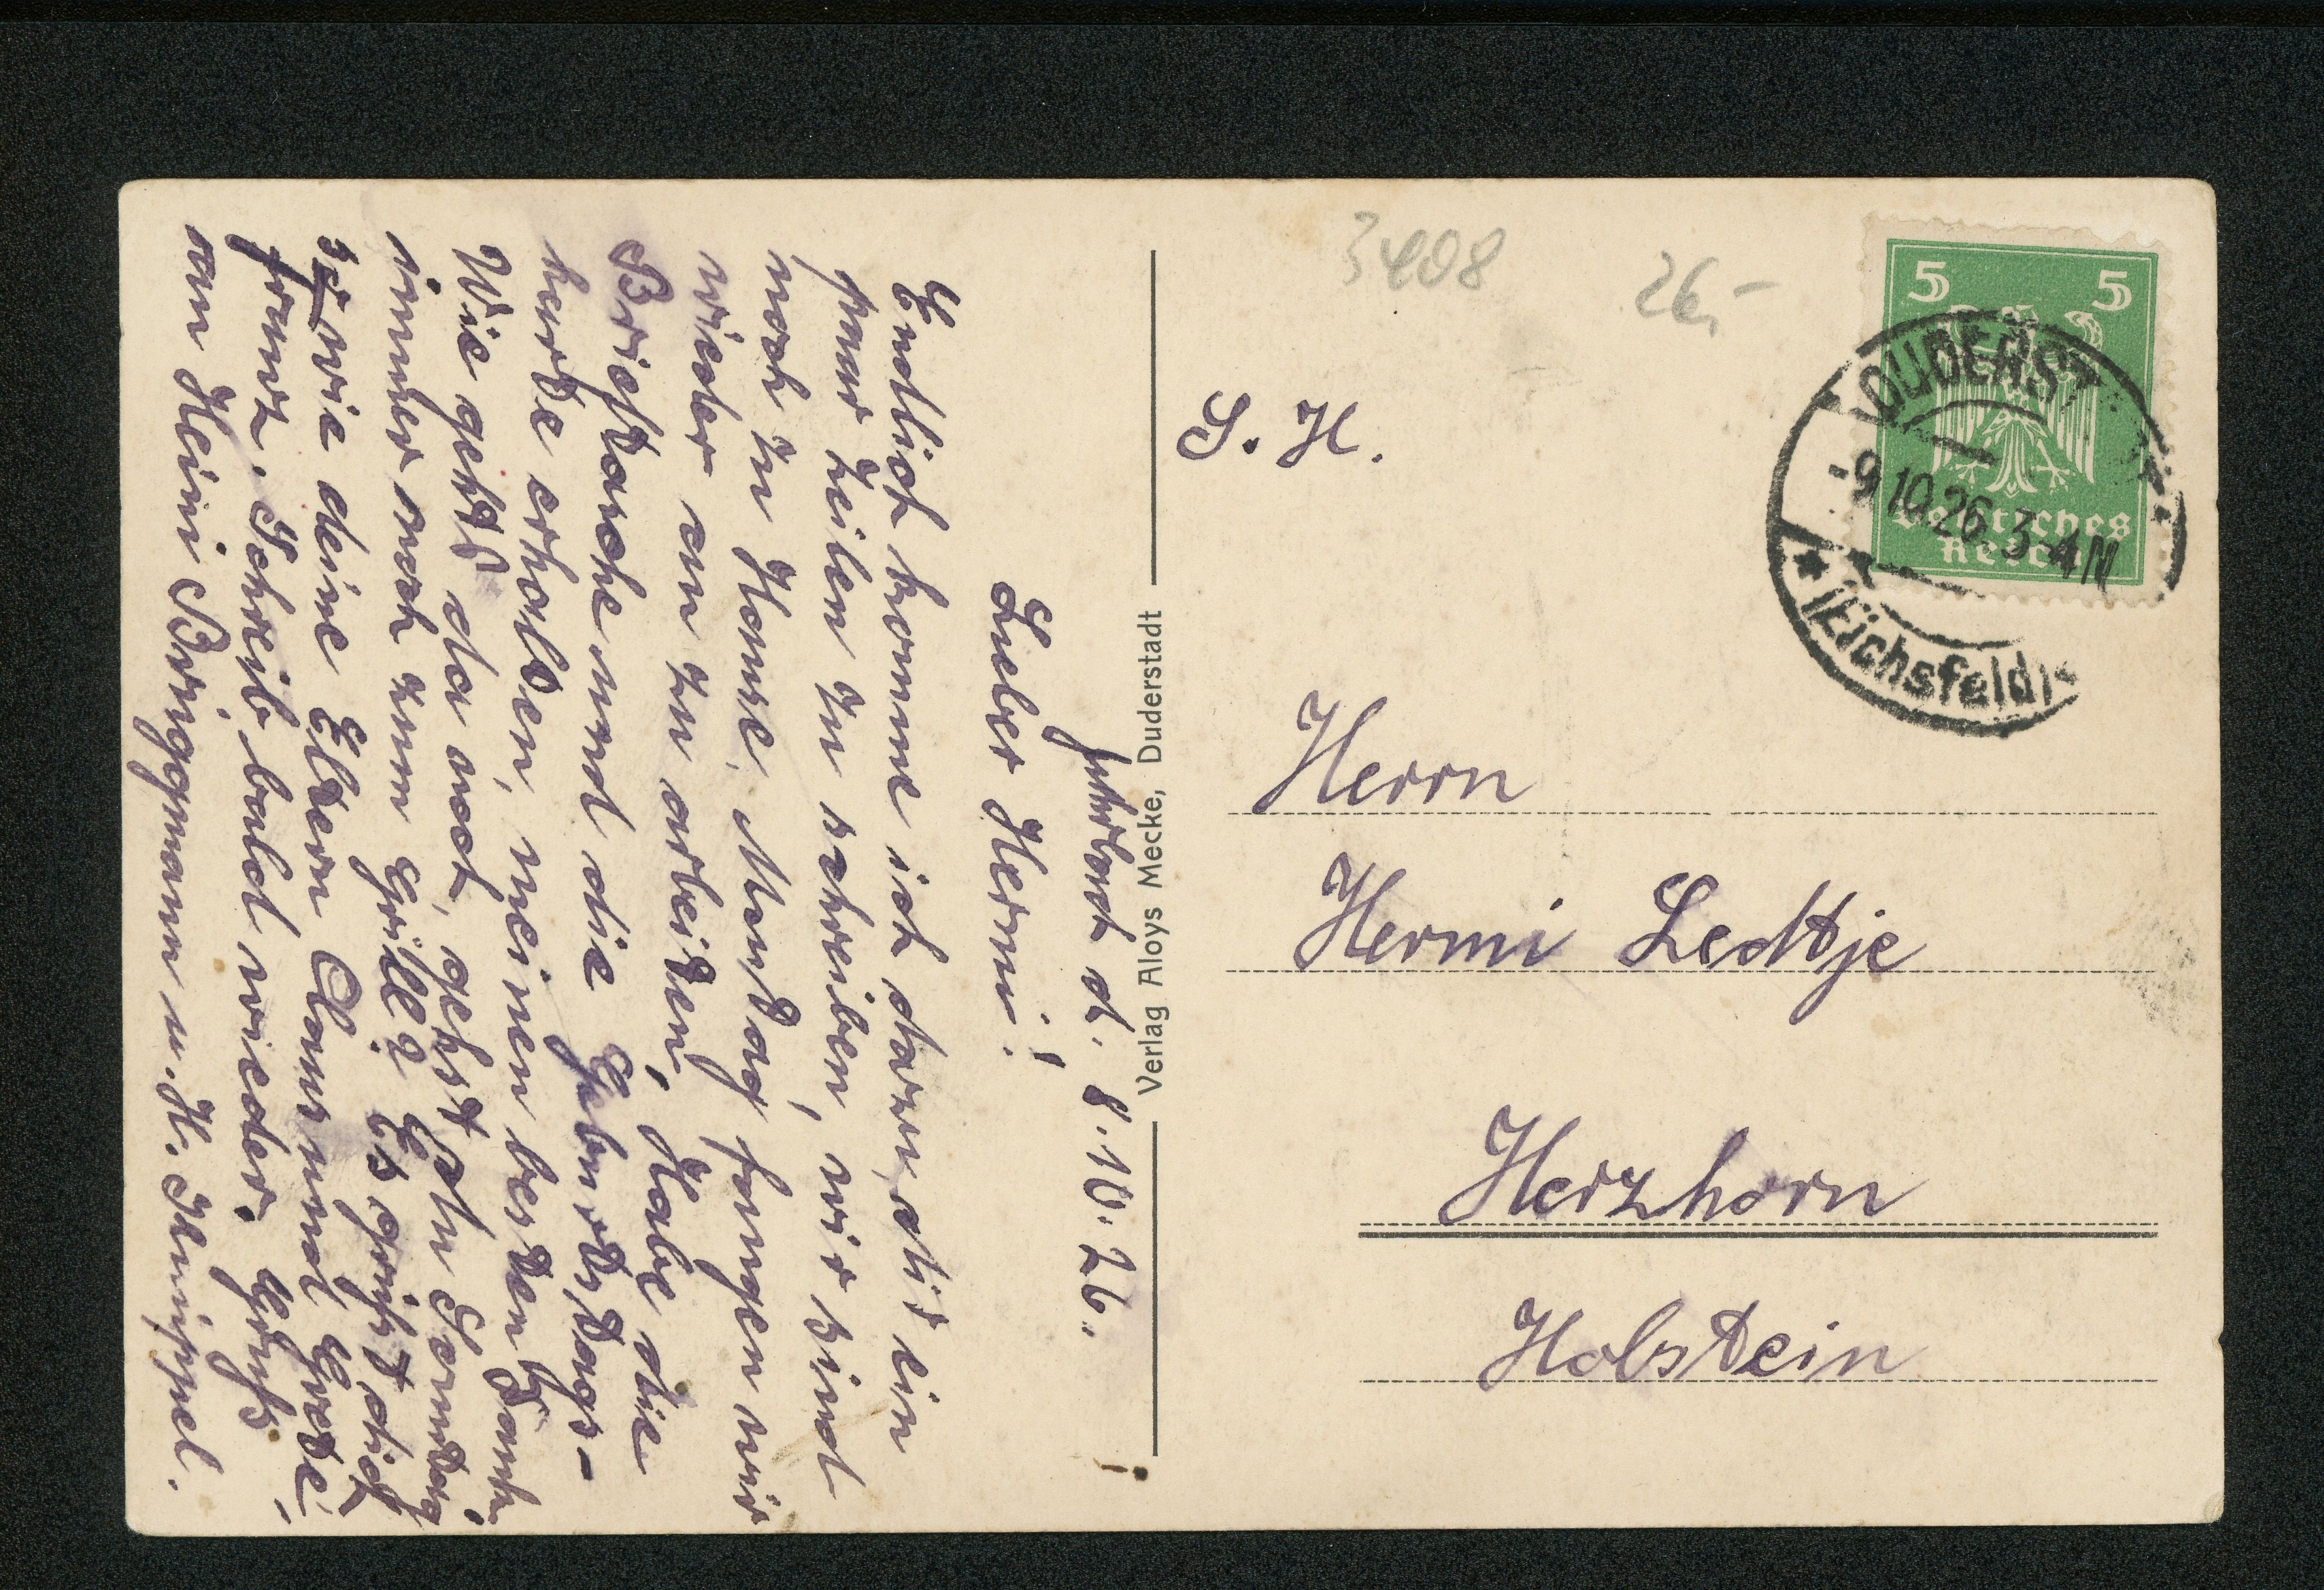 3408
26,-
5 5
Deutsches
Reich
DUDERST
-9.10.26.3-4N
★ (Eichsfeld)
S. H.
Herrn
Hermi Ledtje
Herzhorn
Holstein
Verlag Aloys Mecke, Duderstadt
d. 8.10.26.
Lieber Hermi!
Endlich komme ich dazu, dir ein
paar Zeilen zu schreiben, wir sind
noch zu Hause. Montag fangen wir
wieder an zu arbeiten, Habe die
Brieftasche und die Geburtstags-
karte erhalten, meinen besten Dank.
Wie geht's da noch, gehst du Sonntag
immer noch zum Grill? Es grüßt dich
sowie deine Eltern Claus und Grete,
franz. Schreib bald wieder. Gruß
an Heini Brüggmann u. H.